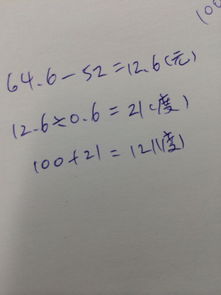 (100
64.6-52=12.6(元)
12.6÷0.6=21(度)
100+21=121(度)